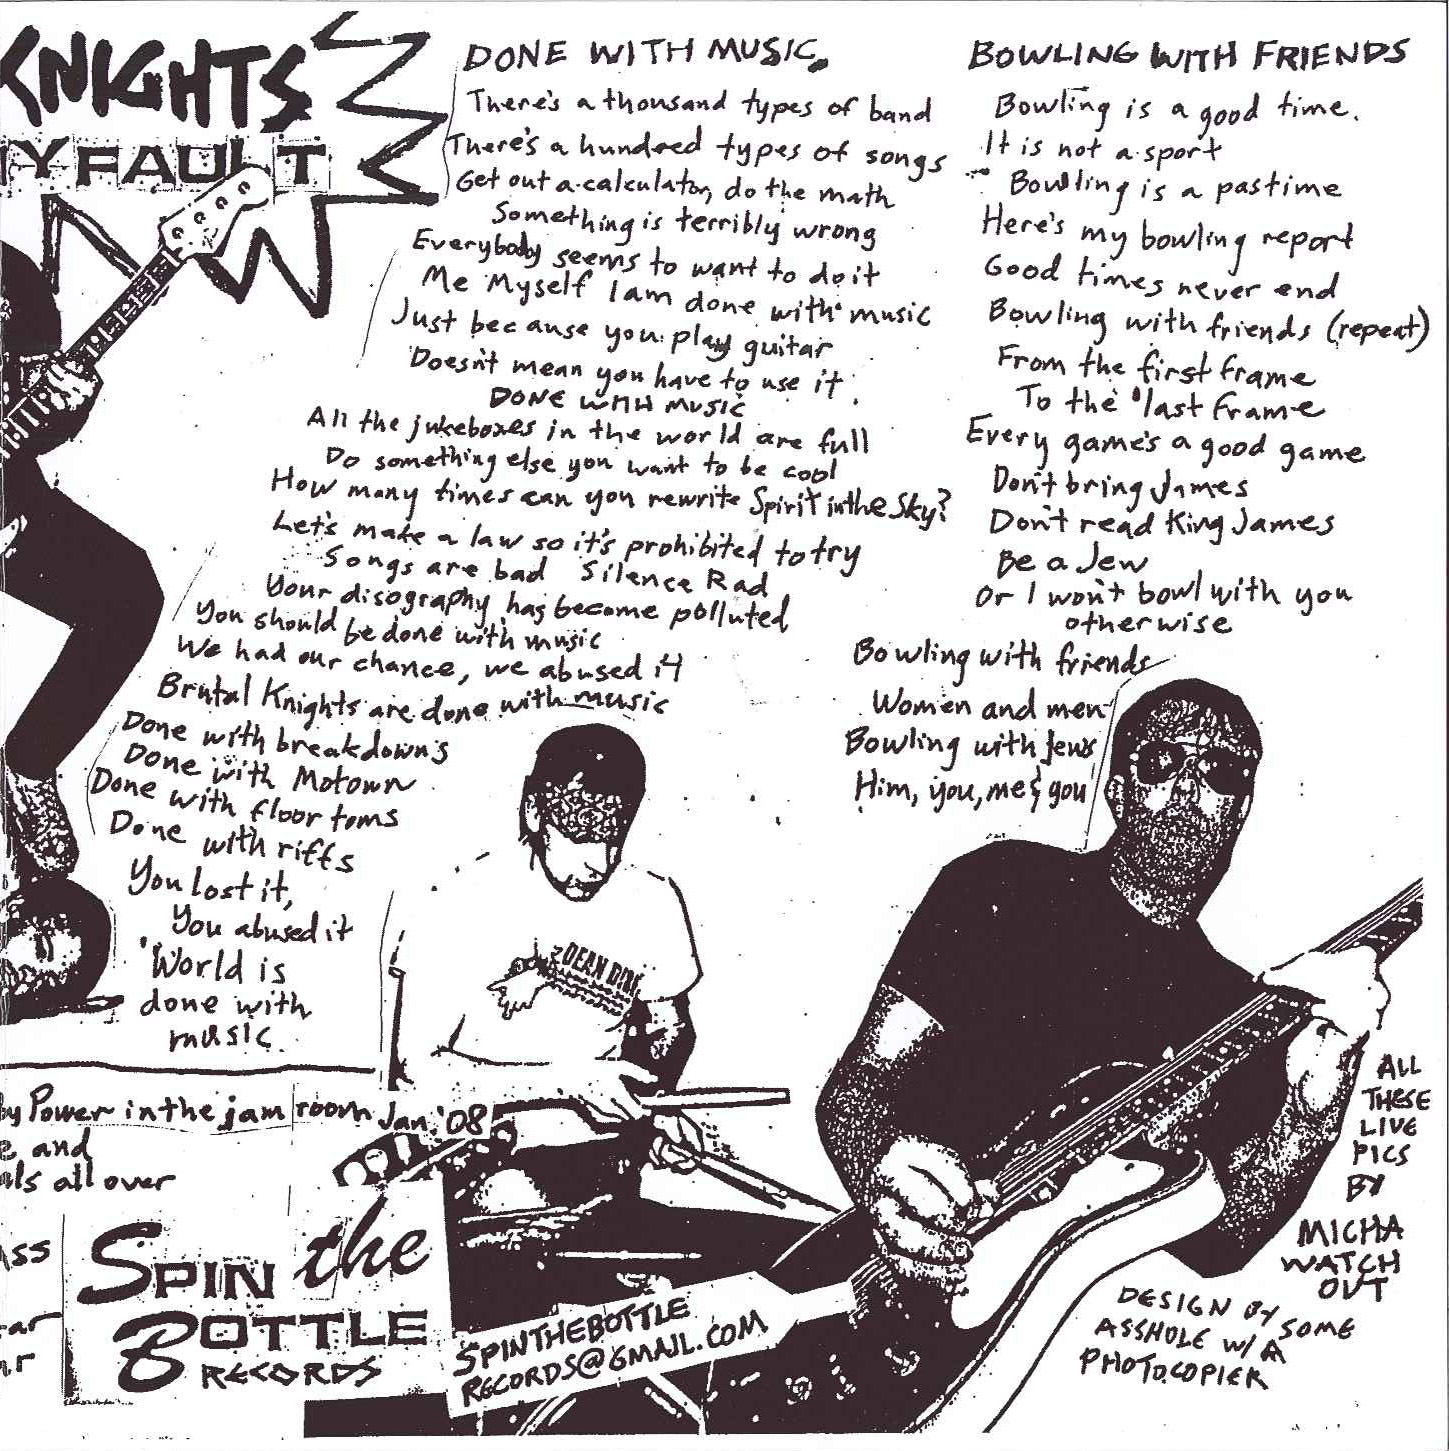 KNIGHTS
MY FAULT
DONE WITH MUSIC.
There's a thousand types of band
There's a hundred types of songs
Get out a calculator, do the math
Something is terribly wrong
Everybody seems to want to do it
Me Myself I am done with music
Just because you play guitar
Doesn't mean you have to use it
DONE WITH MUSIC
All the jukeboxes in the world are full
Do something else you want to be cool
How many times can you rewrite Spirit in the Sky?
Let's make a law so it's prohibited to try
Songs are bad Silence Rad
Your disography has become polluted
You should be done with music
We had our chance, we abused it
Brutal Knights are done with music
Done with breakdowns
Done with Motown
Done with floor toms
Done with riffs
You lost it,
You abused it
World is
done with
music
BOWLING WITH FRIENDS
Bowling is a good time.
It is not a sport
Bowling is a pastime
Here's my bowling report
Good times never end
Bowling with friends (repeat)
From the first frame
To the last frame
Every game's a good game
Don't bring James
Don't read King James
Be a Jew
Or I won't bowl with you
otherwise
Bowling with friends
Women and men
Bowling with Jews
Him, you, me & you
DEAN DIRG
by Power in the jam room Jan. '08
and
all over
SPIN the
BOTTLE
RECORDS
SPINTHEBOTTLE
RECORDS@GMAIL.COM
ALL
THESE
LIVE
PICS
BY
MICHA
WATCH
OUT
DESIGN BY SOME
ASSHOLE W/ A
PHOTOCOPIER